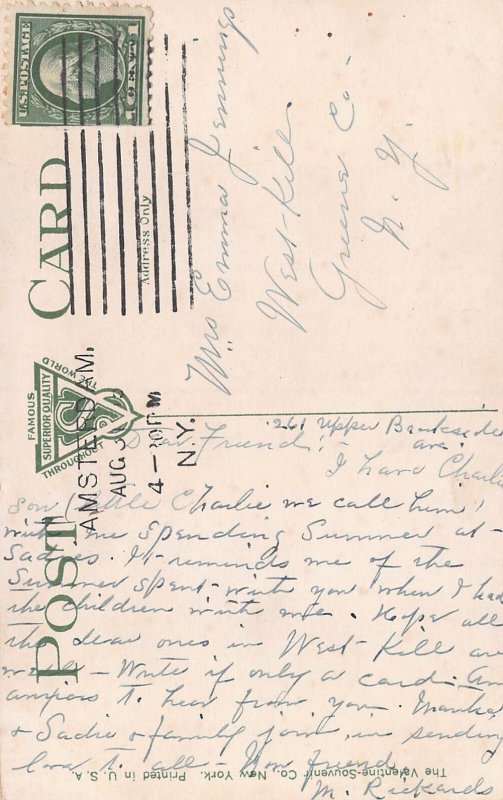 U.S. POSTAGE
1 CENT 1
POST CARD
Address Only
FAMOUS
THROUGHOUT THE WORLD
SUPERIOR QUALITY
AMSTERDAM,
AUG 3
4 – PM
N.Y.
Mrs Emma Jennings
West-Kill
Greene Co-
N. Y.
261 Upper Brookside
ave.
Dear Friend: -
I have Charlie
son (little Charlie we call him)
with me spending Summer at-
Sadies. It-reminds me of the
Summer spent-with you when I had
the children with me. Hope all
the dear ones in West-Kill are
well- Write if only a card. Am
anxious to hear from you.
& Sadie & family join in sending
love to all- Your friend,
M. Rickards
The Valentine-Souvenir Co., New York. Printed in U. S. A.